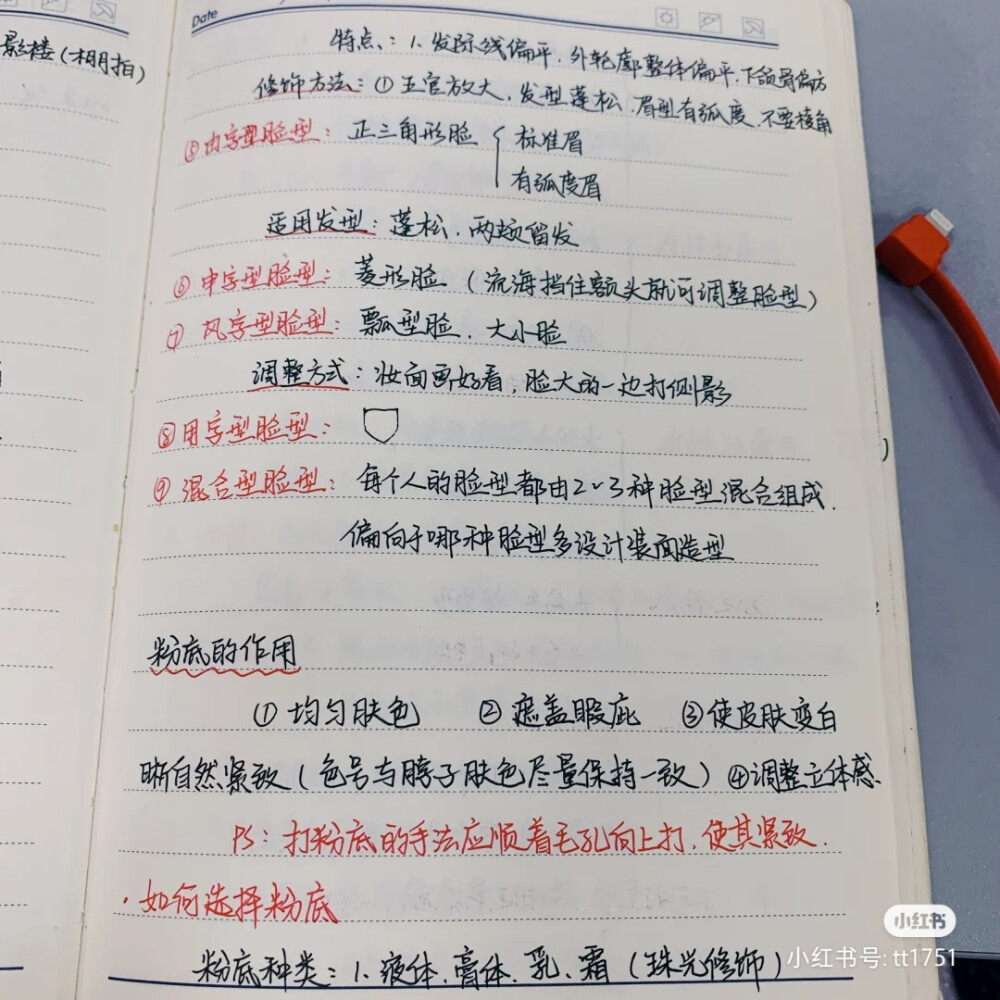 影楼(棚拍)
Date
特点:1、发际线偏平,外轮廓整体偏平,下颌骨偏方
修饰方法:①五官放大,发型蓬松,眉型有弧度,不要棱角
⑤由字型脸型:正三角形脸{标准眉
有弧度眉
适用发型:蓬松、两颊留发
⑥申字型脸型:菱形脸(流海挡住额头就可调整脸型)
⑦风字型脸型:瓢型脸、大小脸
调整方式:妆面画好看,脸大的一边打侧影
⑧用字型脸型:
⑨混合型脸型:每个人的脸型都由2~3种脸型混合组成.
偏向于哪种脸型多设计装面造型
粉底的作用
①均匀肤色 ②遮盖瑕疵 ③使皮肤变白
晰自然紧致(色号与脖子肤色尽量保持一致)④调整立体感.
PS:打粉底的手法应顺着毛孔向上打,使其紧致.
·如何选择粉底
粉底种类:1、液体、膏体、乳、霜(珠光修饰)
小红书
小红书号:tt1751